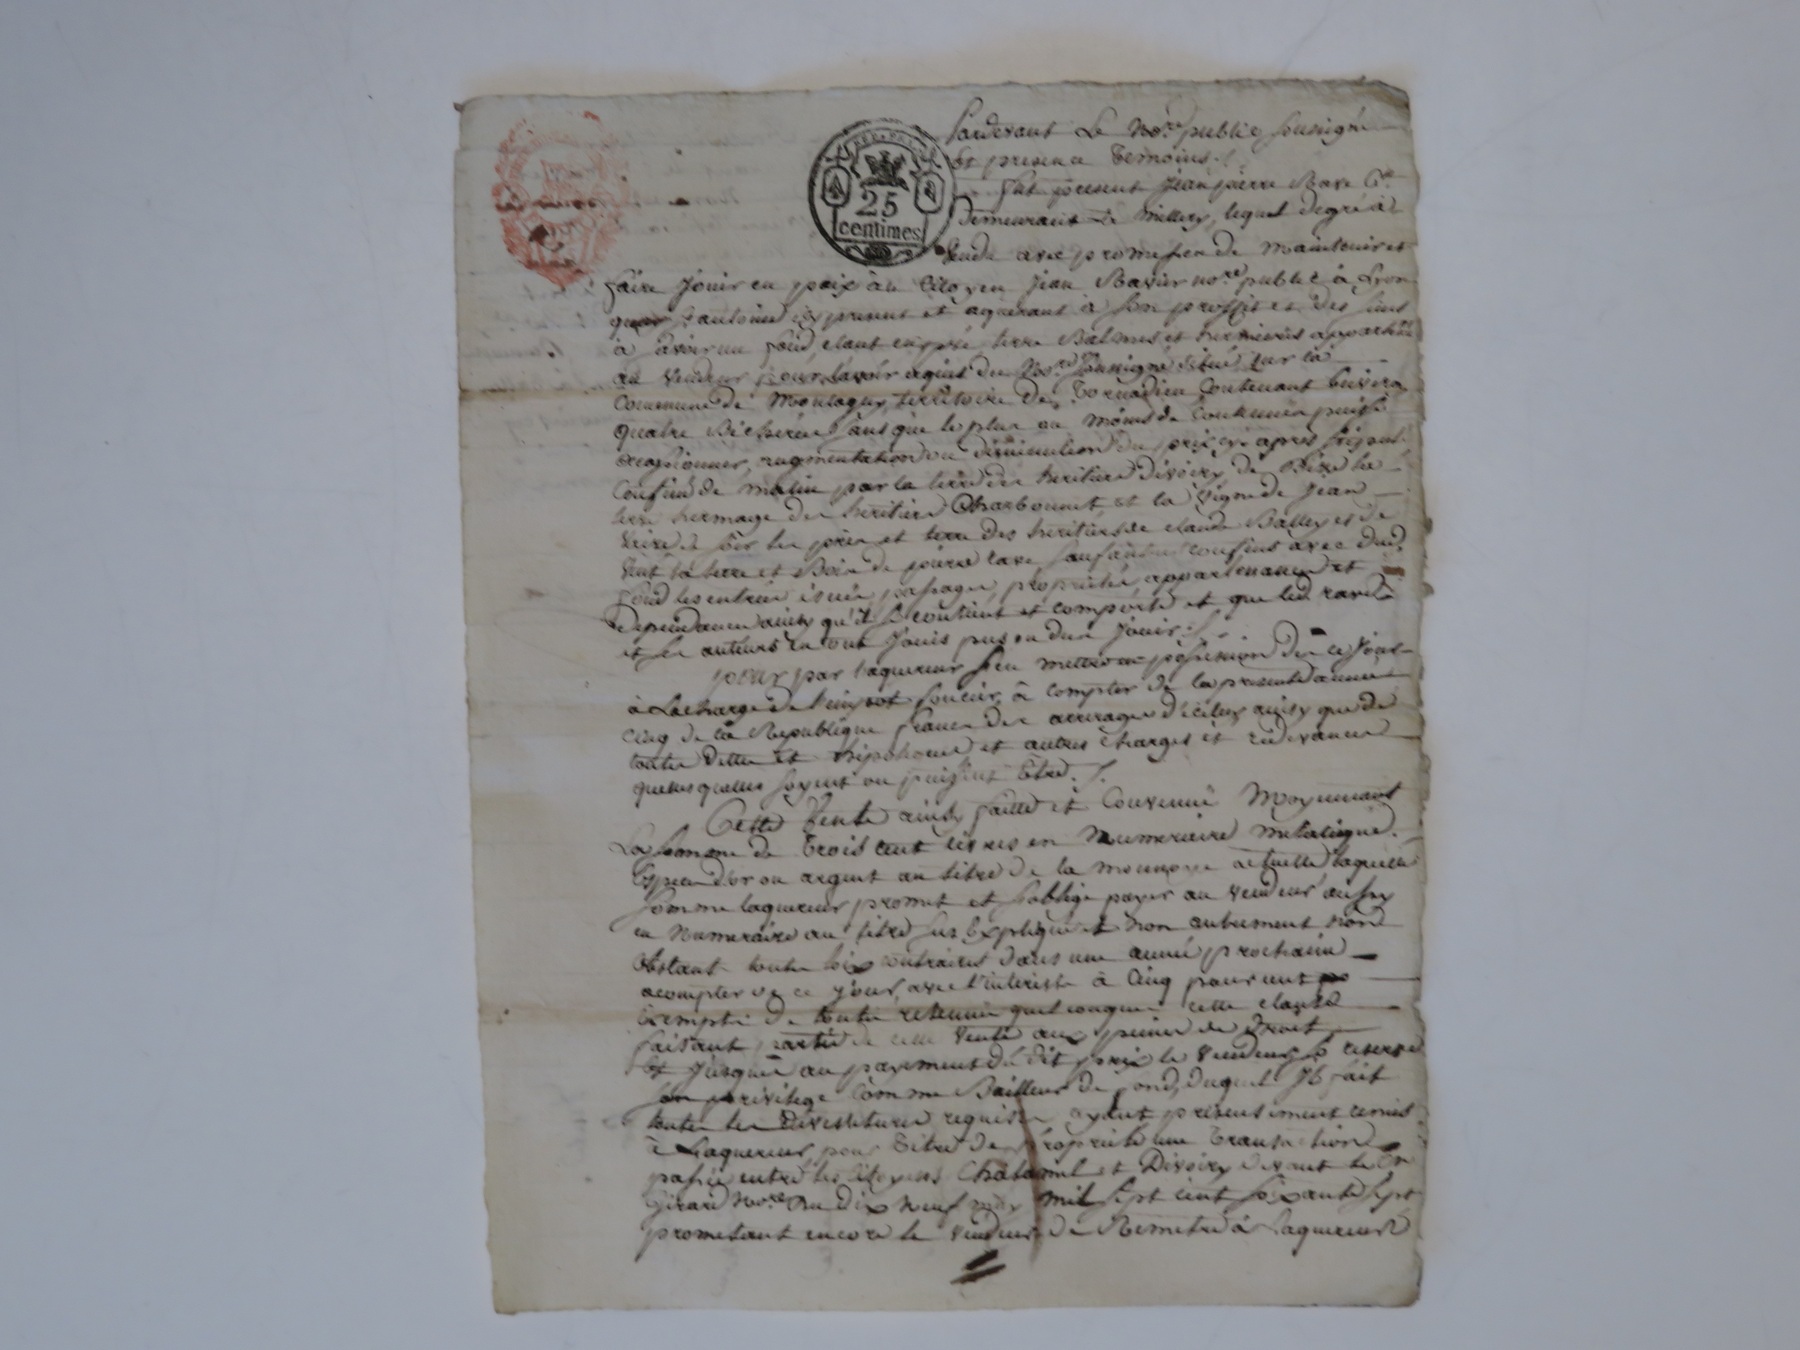 25
centimes
Pardevant Le No.re public soussigné
Et presence Temoins
fut present Jean pierre Cn
Demeurant De millery, lequel degré à
Vendu avec promesse de Maintenir et
faire Jouir en paix au Citoyen Jean Ravier no.re public à Lyon
present et aquerant à son proffit et des siens
à savoir un fond, etant en pré terre Balmes et hermieres
au Vendeur pour l'avoir aquis du No.re soussigné situé sur la
Commune de Montagny, territoire de Tornadieu Contenant Environ
quatre Bicherées sans que le plus ou moins de Contenue puisse
occasionner, augmentation ou diminution du prix cy après
Confiné de matin par la terre des heritiers divoiry, de Bize la
terre hermage des heritiers Charbonnet, et la Vigne de Jean
de soir les prés et terre des heritiers de claude Balley et de
Vent la terre et Bois de pierre rave sauf autres confins avec dud.
fond les entrées issues, passages, proprietés, appartenances et
dependances ainsy qu'il se contient et comporte et que led. rave
et ses auteurs en ont Jouis pus ou dus Jouir
pour par l'aquereur s'en mettre en possession des ce Jour
à La charge de l'impot foncier, à compter de la presente année
cinq de la Republique franc des arrerages d'icelluy ainsy que de
toutes dettes et hipotheques et autres charges et redevances
quelles quelles soyent ou puissent Etre.
Cette Vente ainsy faitte et Convenue Moyennant
La somme de Trois cent livres en Numeraire metalique
Especes d'or ou argent au titre de la monnoye actuelle laquelle
somme l'aquereur promet et s'oblige payer au Vendeur aussy
en Numeraire au titre sus Expliqué et non autrement non
obstant toutes loix contraires dans une année prochaine
acompter de ce Jour, avec l'interets à Cinq pour cent
Exempte de toute retenue quelconque cette clause
faisant partie de cette Vente aux peines de Droit
Et Jusques au payement du dit prix le Vendeur se reserve
son privilege Comme Bailleur de fond, duquel Il fait
toutes les devestitures requises ayant presentement remis
à L'aquereur, pour titre de proprieté une transaction
passée entre les Citoyens Chatanel et Divoiry devant le Cn
Girard No.re du dix neuf may mil sept cent soixante sept
promettant encore le Vendeur de Remettre à l'aquereur